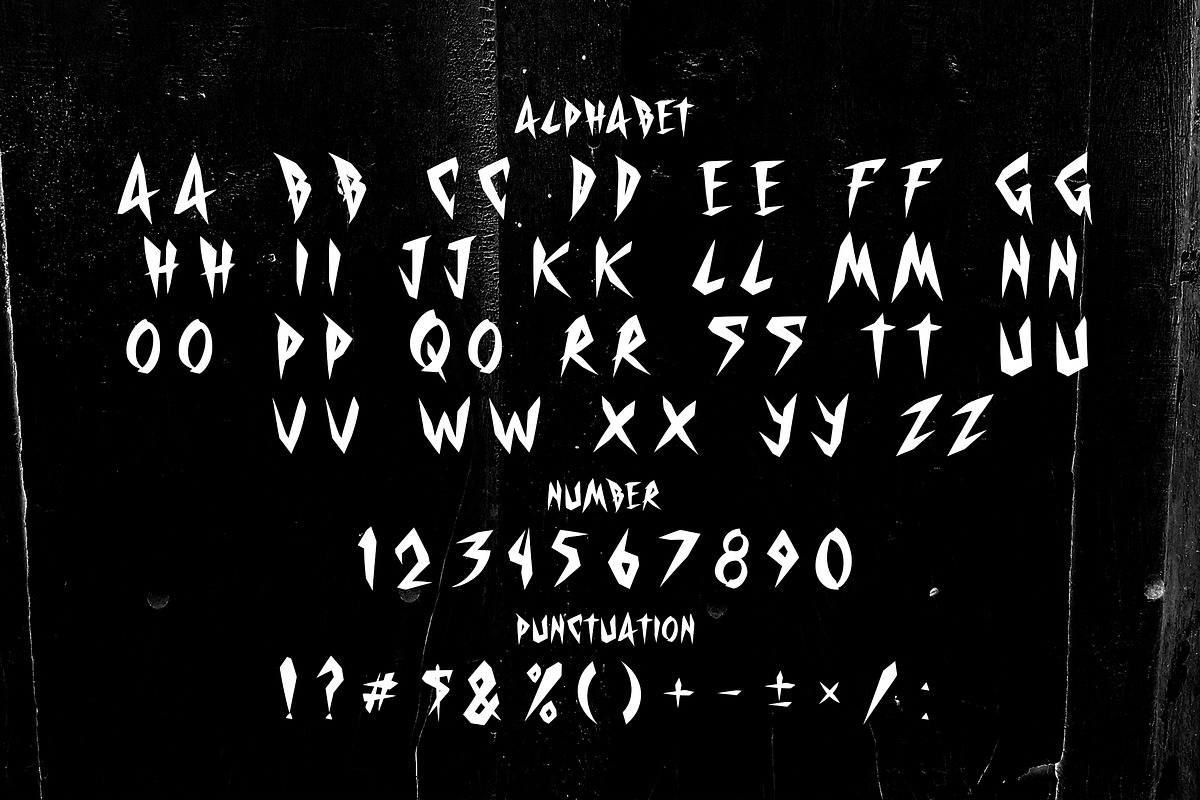 ALPHABET
AA BB CC DD EE FF GG
HH II JJ KK LL MM NN
OO PP QO RR SS TT UU
VV WW XX YY ZZ
NUMBER
1234567890
PUNCTUATION
!?#$&%()+-±×/: